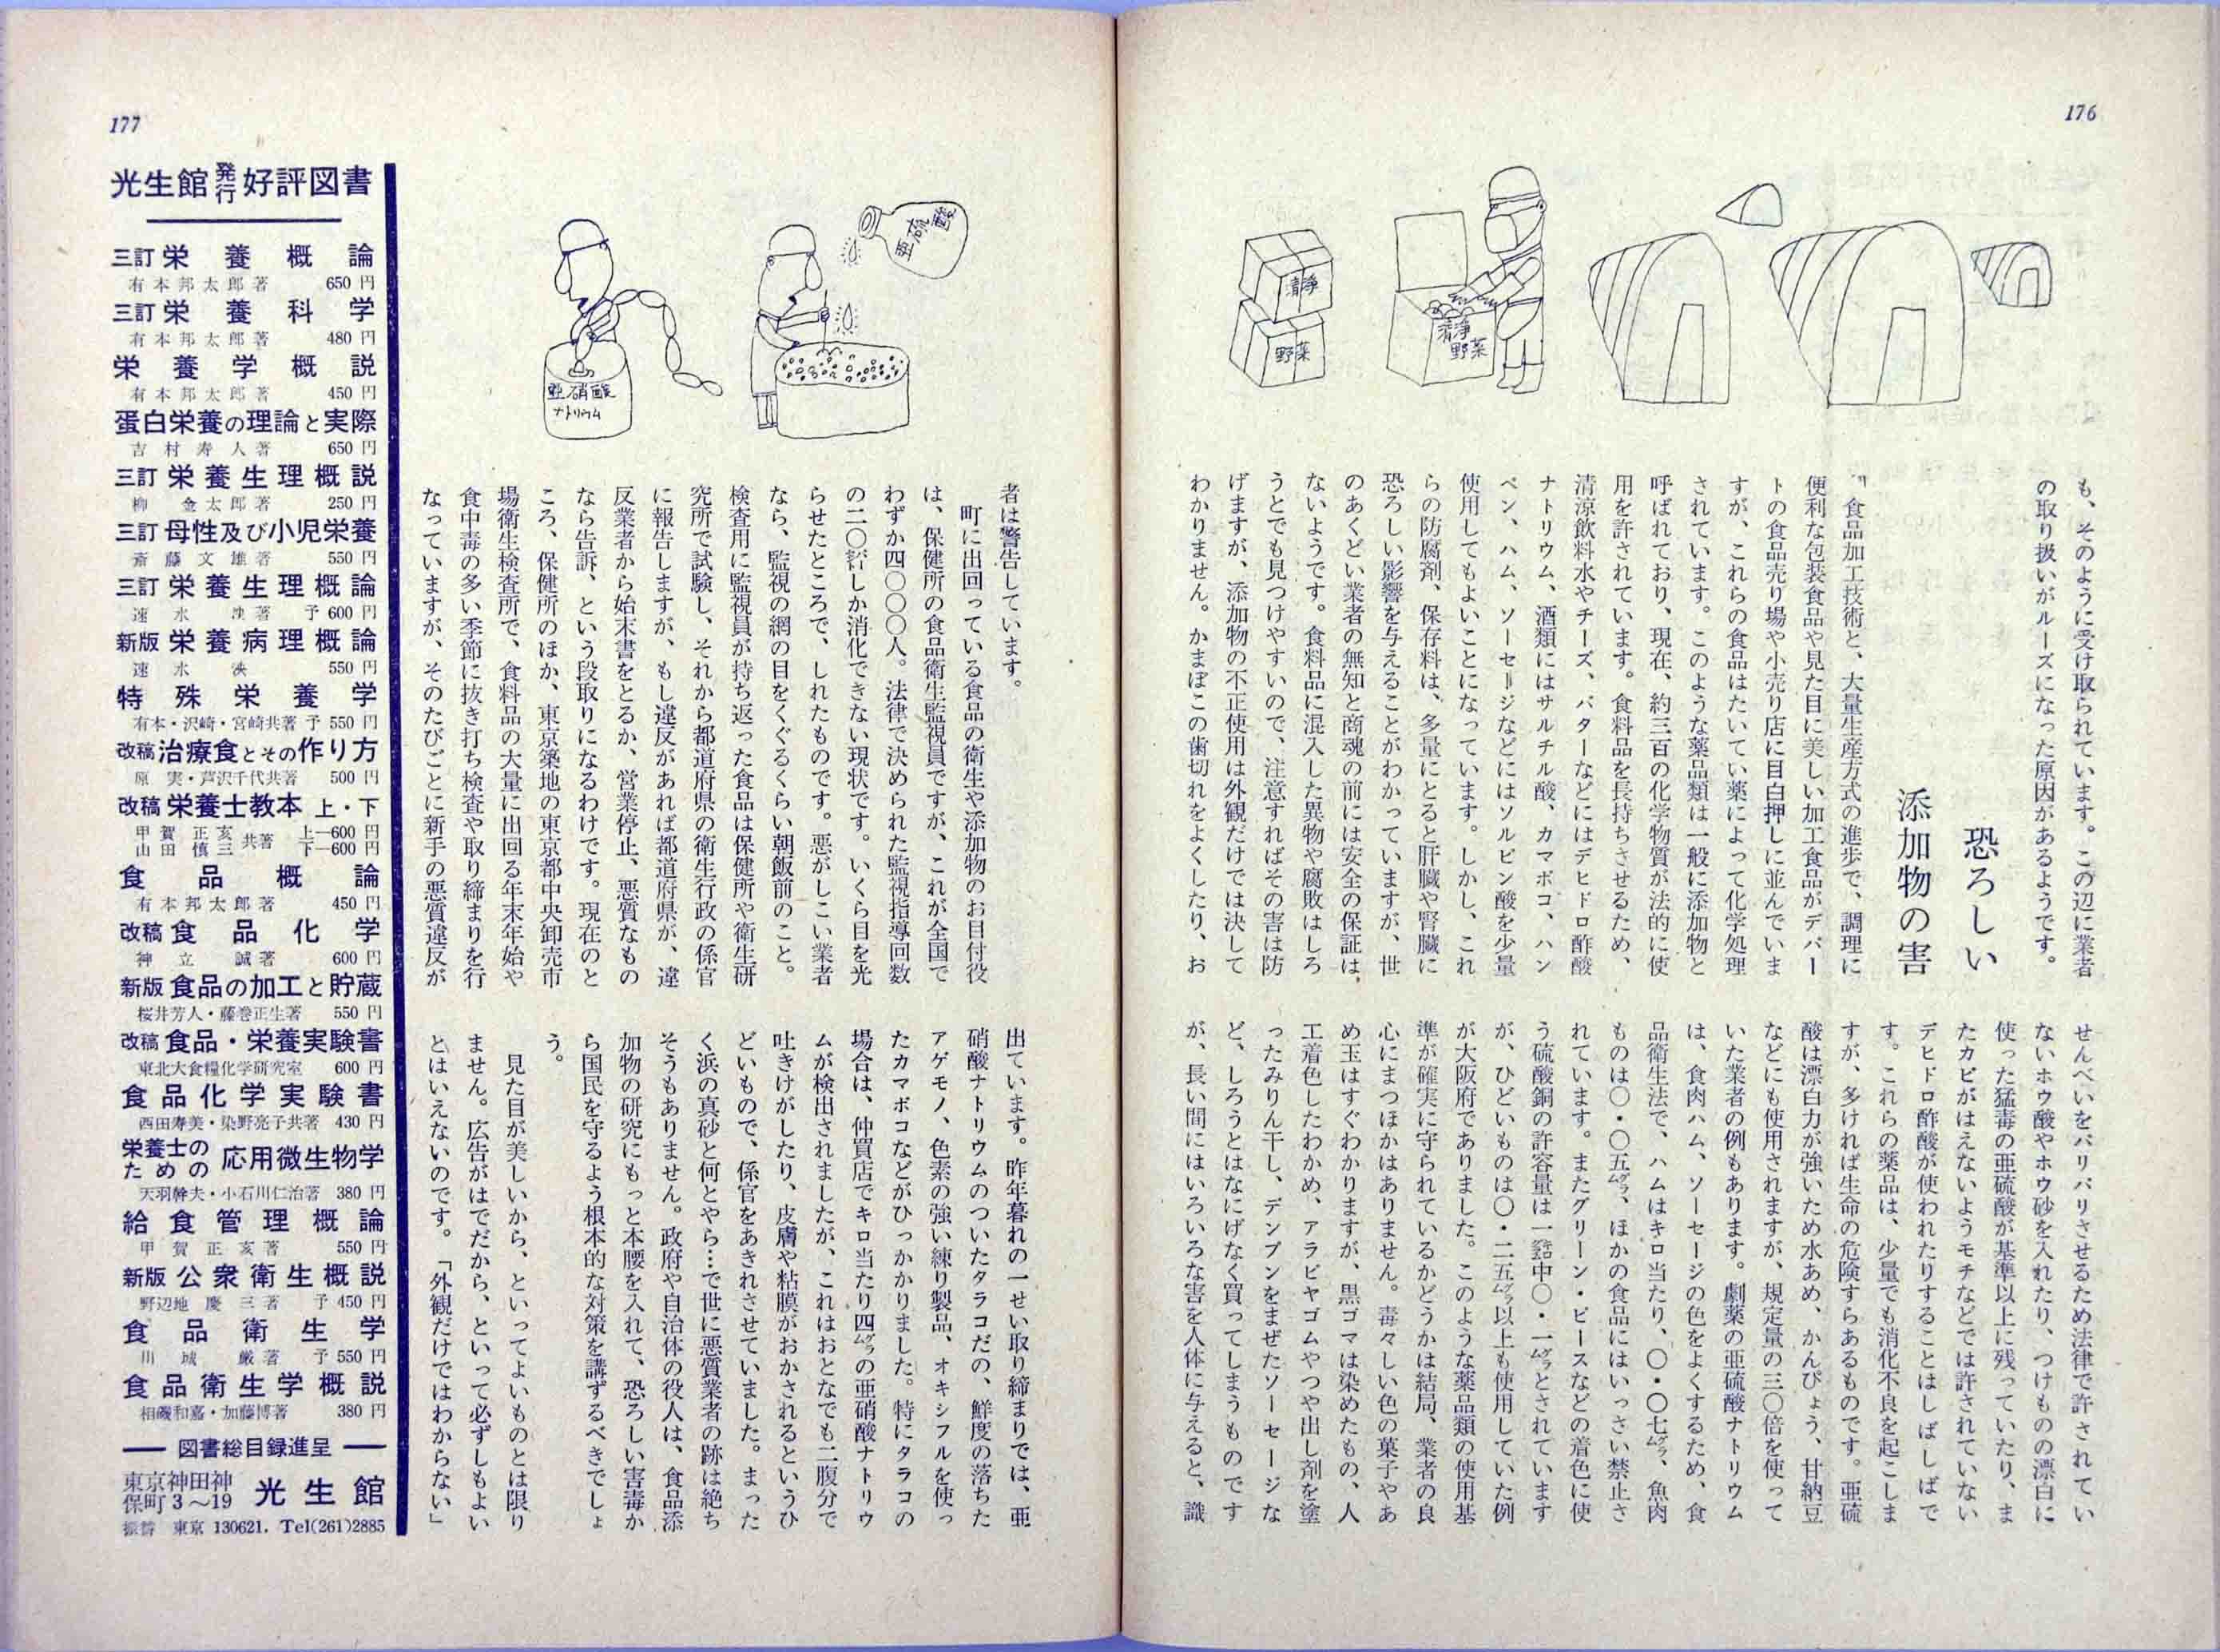 176
清浄
野菜
清浄
野菜
も、そのように受け取られています。この辺に業者
の取り扱いがルーズになった原因があるようです。
恐ろしい
添加物の害
食品加工技術と、大量生産方式の進歩で、調理に
便利な包装食品や見た目に美しい加工食品がデパー
トの食品売り場や小売り店に目白押しに並んでいま
すが、これらの食品はたいてい薬によって化学処理
されています。このような薬品類は一般に添加物と
呼ばれており、現在、約三百の化学物質が法的に使
用を許されています。食料品を長持ちさせるため、
清涼飲料水やチーズ、バターなどにはデヒドロ酢酸
ナトリウム、酒類にはサルチル酸、カマボコ、ハン
ペン、ハム、ソーセージなどにはソルビン酸を少量
使用してもよいことになっています。しかし、これ
らの防腐剤、保存料は、多量にとると肝臓や腎臓に
恐ろしい影響を与えることがわかっていますが、世
のあくどい業者の無知と商魂の前には安全の保証は、
ないようです。食料品に混入した異物や腐敗はしろ
うとでも見つけやすいので、注意すればその害は防
げますが、添加物の不正使用は外観だけでは決して
わかりません。かまぼこの歯切れをよくしたり、お
せんべいをパリパリさせるため法律で許されてい
ないホウ酸やホウ砂を入れたり、つけものの漂白に
使った猛毒の亜硫酸が基準以上に残っていたり、ま
たカビがはえないようモチなどでは許されていない
デヒドロ酢酸が使われたりすることはしばしばで
す。これらの薬品は、少量でも消化不良を起こしま
すが、多ければ生命の危険すらあるものです。亜硫
酸は漂白力が強いため水あめ、かんぴょう、甘納豆
などにも使用されますが、規定量の三〇倍を使って
いた業者の例もあります。劇薬の亜硫酸ナトリウム
は、食肉ハム、ソーセージの色をよくするため、食
品衛生法で、ハムはキロ当たり、〇・〇七グラム、魚肉
ものは〇・〇五グラム、ほかの食品にはいっさい禁止さ
れています。またグリーン・ピースなどの着色に使
う硫酸銅の許容量は一キロ中〇・一グラムとされています
が、ひどいものは〇・二五グラム以上も使用していた例
が大阪府でありました。このような薬品類の使用基
準が確実に守られているかどうかは結局、業者の良
心にまつほかはありません。毒々しい色の菓子やあ
め玉はすぐわかりますが、黒ゴマは染めたもの、人
工着色したわかめ、アラビヤゴムやつや出し剤を塗
ったみりん干し、デンプンをまぜたソーセージな
ど、しろうとはなにげなく買ってしまうものです
が、長い間にはいろいろな害を人体に与えると、識
177
亜硫酸
亜硝酸
ナトリウム
者は警告しています。
町に出回っている食品の衛生や添加物のお目付役
は、保健所の食品衛生監視員ですが、これが全国で
わずか四〇〇〇人。法律で決められた監視指導回数
の二〇パーセントしか消化できない現状です。いくら目を光
らせたところで、しれたものです。悪がしこい業者
なら、監視の網の目をくぐるくらい朝飯前のこと。
検査用に監視員が持ち返った食品は保健所や衛生研
究所で試験し、それから都道府県の衛生行政の係官
に報告しますが、もし違反があれば都道府県が、違
反業者から始末書をとるか、営業停止、悪質なもの
なら告訴、という段取りになるわけです。現在のと
ころ、保健所のほか、東京築地の東京都中央卸売市
場衛生検査所で、食料品の大量に出回る年末年始や
食中毒の多い季節に抜き打ち検査や取り締まりを行
なっていますが、そのたびごとに新手の悪質違反が
出ています。昨年暮れの一せい取り締まりでは、亜
硝酸ナトリウムのついたタラコだの、鮮度の落ちた
アゲモノ、色素の強い練り製品、オキシフルを使っ
たカマボコなどがひっかかりました。特にタラコの
場合は、仲買店でキロ当たり四グラムの亜硝酸ナトリウ
ムが検出されましたが、これはおとなでも二腹分で
吐きけがしたり、皮膚や粘膜がおかされるというひ
どいもので、係官をあきれさせていました。まった
く浜の真砂と何とやら…で世に悪質業者の跡は絶ち
そうもありません。政府や自治体の役人は、食品添
加物の研究にもっと本腰を入れて、恐ろしい害毒か
ら国民を守るよう根本的な対策を講ずるべきでしょ
う。
見た目が美しいから、といってよいものとは限り
ません。広告がはでだから、といって必ずしもよい
とはいえないのです。「外観だけではわからない」
光生館発行好評図書
三訂 栄養概論
有本邦太郎著 650円
三訂 栄養科学
有本邦太郎著 480円
栄養学概説
有本邦太郎著 450円
蛋白栄養の理論と実際
吉村寿人著 650円
三訂 栄養生理概説
柳金太郎著 250円
三訂 母性及び小児栄養
斎藤文雄著 550円
三訂 栄養生理概論
速水 著 予600円
新版 栄養病理概論
速水 550円
特殊栄養学
有本・沢崎・宮崎共著 予550円
改稿 治療食とその作り方
原 実・芦沢千代共著 500円
改稿 栄養士教本 上・下
甲賀正亥
山田慎三 共著 上—600円
下—600円
食品概論
有本邦太郎著 450円
改稿 食品化学
神立誠著 600円
新版 食品の加工と貯蔵
桜井芳人・藤巻正生著 550円
改稿 食品・栄養実験書
東北大食糧化学研究室 600円
食品化学実験書
西田寿美・染野亮子共著 430円
栄養士のための 応用微生物学
天羽幹夫・小石川仁治著 380円
給食管理概論
甲賀正亥著 550円
新版 公衆衛生概説
野辺地慶三著 予450円
食品衛生学
川城巌著 予550円
食品衛生学概説
相磯和嘉・加藤博著 380円
図書総目録進呈
東京神田神
保町3〜19 光生館
振替 東京 130621. Tel(261)2885